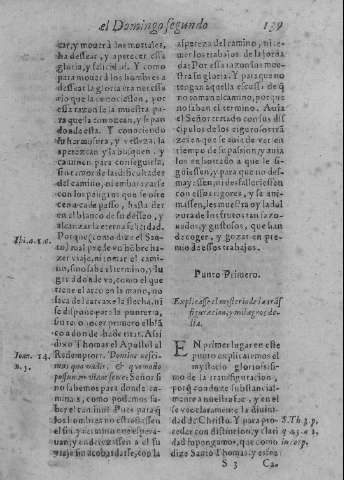 el Domingo segundo 139
car, y mouer à los mortales,
ha dessear, y apetecer essa
gloria, y felicidad. Y como
para mouer à los hombres a
dessear la gloria era necessa
rio que la conociessen, por
essa razõ se la muestra pa
ra que la conozcan, y sepan
donde està. Y conociendo
su hermosura, y belleza la
apetezcan y la busquen. y
caminen para conseguirla,
sin temor de las dificultades
del camino, ni embarazarse
con los peligros que se ofre
cen a cada passo, hasta dar
en el blanco de su desseo, y
alcanzar la eterna felicidad.
Porque como dize el San-
to) mal puede vn hõbre ha-
zer viaje, ni tomar el cami-
no, sino sabe el termino, y lu
gar adonde vè, como el que
tiene el arco en la mano, no
saca del carcaxe la flecha, ni
se dispone para la punteria,
sino conoce primero el blã
co a donde ha de tirar. Assi
dixo Thomas el Apostol al
Redemptor. Domine nesci-
mus quo vadis, & quomodo
possumus viam scire: Señor si
no sabemos para donde ca-
minais, como podemos sa-
ber el camino? Pues para q̃
los hombres no estuviessen
en el camino sin espe-
rar y enderezassen a el su
viaje sin acobardasse, con la
Thi. a. 1. c.
Ioan. 14.
n. 5.
aspereza del camino, ni te-
mer los trabajos de la jorna
da Por essa razon les mue-
stra su gloria. Y para que no
tengan aquella escusa de q̃
no toman el camino, porque
no saben el termino. Assi
el Señor
cipulos de los rigores
zes en que se auia de ver en
tiempo de su passion, y aui-
los exhortado a que le si-
guiessen, y para que no des-
mayassen, ni desfalleciessen
con essos rigores, y se ani-
massen, les muestra oy la dul
zura de los frutos tan sazo-
nados, y gustosos, que han
de coger, y gozar en pre-
mio de essos trabajos.
Punto Primero.
Explicasse el misterio de la trãs
figuracion, y milagros de-
lla.
EN primer lugar en este
punto explicaremos el
mysterio gloriosis-
simo de la transfiguracion,
porq̃ con duze substancial-
mente a nuestro fee, y en el
se vee claramente la diuini-
dad de Christo. Y para pro-
ceder con distincion, y clari
dad supongamos, que como
dize Santo Thomas, y en
S. Th. 3. p.
q. 45. a. 2.
in corp.
S 3 Ca-